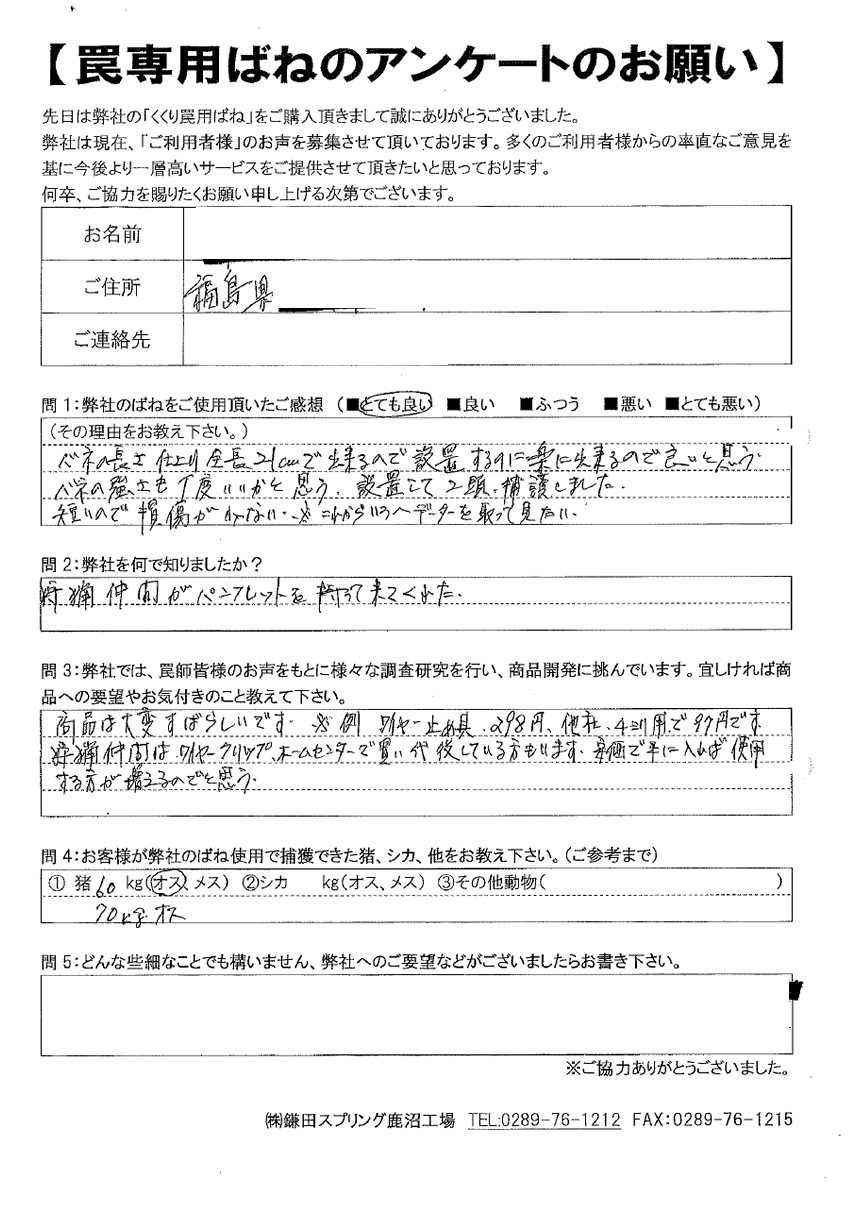 【罠専用ばねのアンケートのお願い】
先日は弊社の「くくり罠用ばね」をご購入頂きまして誠にありがとうございました。
弊社は現在、「ご利用者様」のお声を募集させて頂いております。多くのご利用者様からの率直なご意見を
基に今後より一層高いサービスをご提供させて頂きたいと思っております。
何卒、ご協力を賜りたくお願い申し上げる次第でございます。
お名前
ご住所 福島県
ご連絡先
問1:弊社のばねをご使用頂いたご感想 (■とても良い ■良い ■ふつう ■悪い ■とても悪い)
(その理由をお教え下さい。)
バネの長さ 仕上り全長21cmで出来るので設置するのに楽に出来るので良いと思う.
バネの強さも丁度いいかと思う. 設置して2頭.捕護しました.
短いので損傷が少ない.※これからいろへデーターを取って見たい.
問2:弊社を何で知りましたか?
狩猟仲間がパンフレットを持って来てくれた.
問3:弊社では、罠師皆様のお声をもとに様々な調査研究を行い、商品開発に挑んでいます。宜しければ商
品への要望やお気付きのこと教えて下さい。
商品は大変すばらしいです. ※例 ワイヤー止め具.298円、他社、4ミリ用で97円です
狩猟仲間はワイヤークリップ、ホームセンターで買い代役している方もいます. 安価で手に入れば使用
する方が増えるのでと思う.
問4:お客様が弊社のばね使用で捕獲できた猪、シカ、他をお教え下さい。(ご参考まで)
① 猪 60 kg(オス、メス) ②シカ kg(オス、メス) ③その他動物( )
70kg オス
問5:どんな些細なことでも構いません、弊社へのご要望などがございましたらお書き下さい。
※ご協力ありがとうございました。
㈱鎌田スプリング鹿沼工場 TEL:0289-76-1212 FAX:0289-76-1215